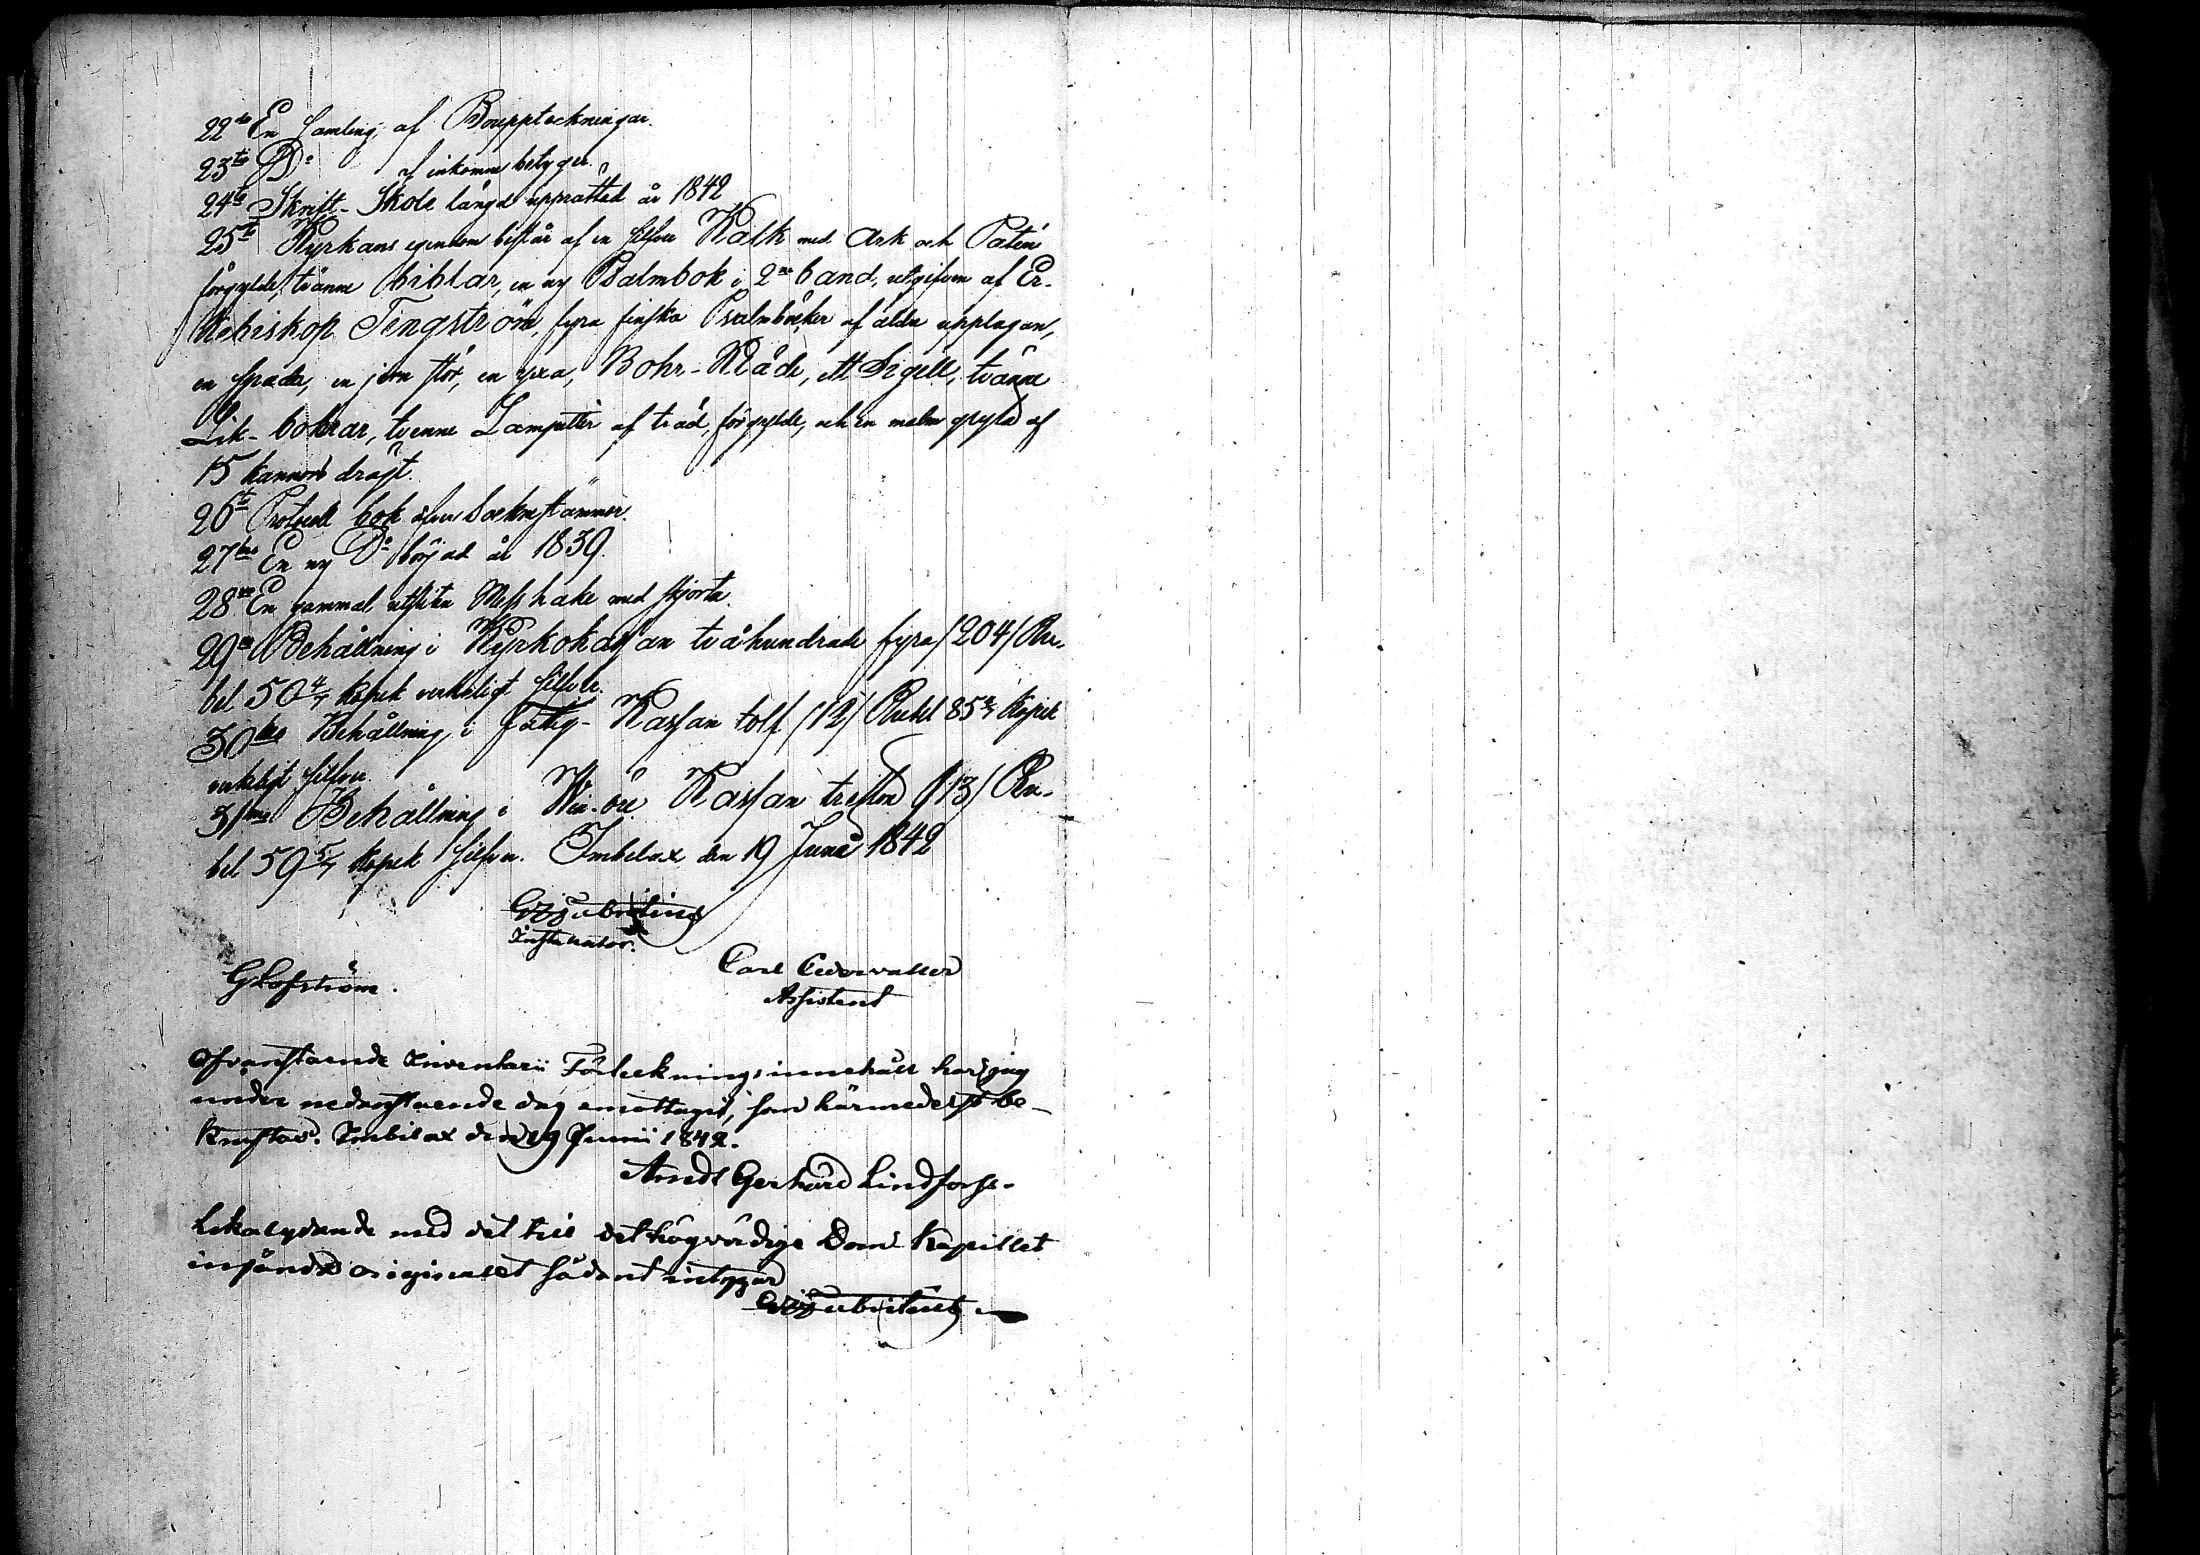 22do En samling af Bouppteckningar.
23tio Do af inkomne betyger.
24to Skrift-Skole längd upprättad år 1842
25to Kyrkans egendom består af en silfver Kalk med Ask och Patén
förgylde, tvänne biblar, en ny Psalmbok i 2ne band, utgifven af Er-
kebiskop Tengström, fyra finska Psalmböcker af äldre upplagan,
en spada, en jern stör, en yxa, Bohr-Kläde, ett Sigill, tvänne
Lik-bohrar, tvenne Lampetter af träd, förgylde, och en malm gryta af
15 kannors drägt.
26to Protocoll bok öfver Socknestämmor.
27mo En ny Do börjad år 1839.
28vo En gammal utsliten Messhake med skjorta.
29no Behållning i Kyrkokassan tvåhundrade fyra /204/ Ru-
bel 50 4/7 kopek verkeligt silfver.
30mo Behållning i fattig-Kassan tolf /12/ Rubel 85 5/7 Kopek
verkeligt silfver
31mo Behållning i Win-öre Kassan tretton /13/ Ru-
bel 59 5/7 kopek silfver. Imbelax den 19 Junii 1842
Carl Cedervaller
Assistent
G Löfström.
Ofvanstående Inventarii Förteckningsinnehåll har jag
under nedanstående dag emottagit, som härmedelst be-
kräftas. Imbilax den 19 Junii 1842.
Arndt Gerhard Lindforss.
Lika lydande med det till det högvördige Dom Kapitlet
insände originalet sådant intygar